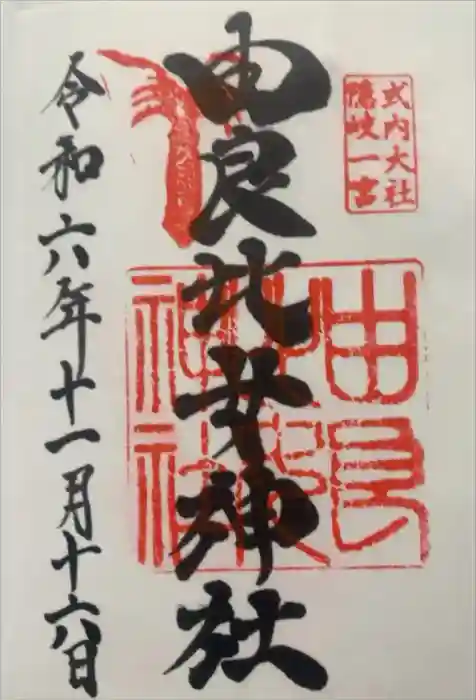 式内大社
隠岐一宮
由良比女神社
由良
比女
神社
令和六年十一月十六日